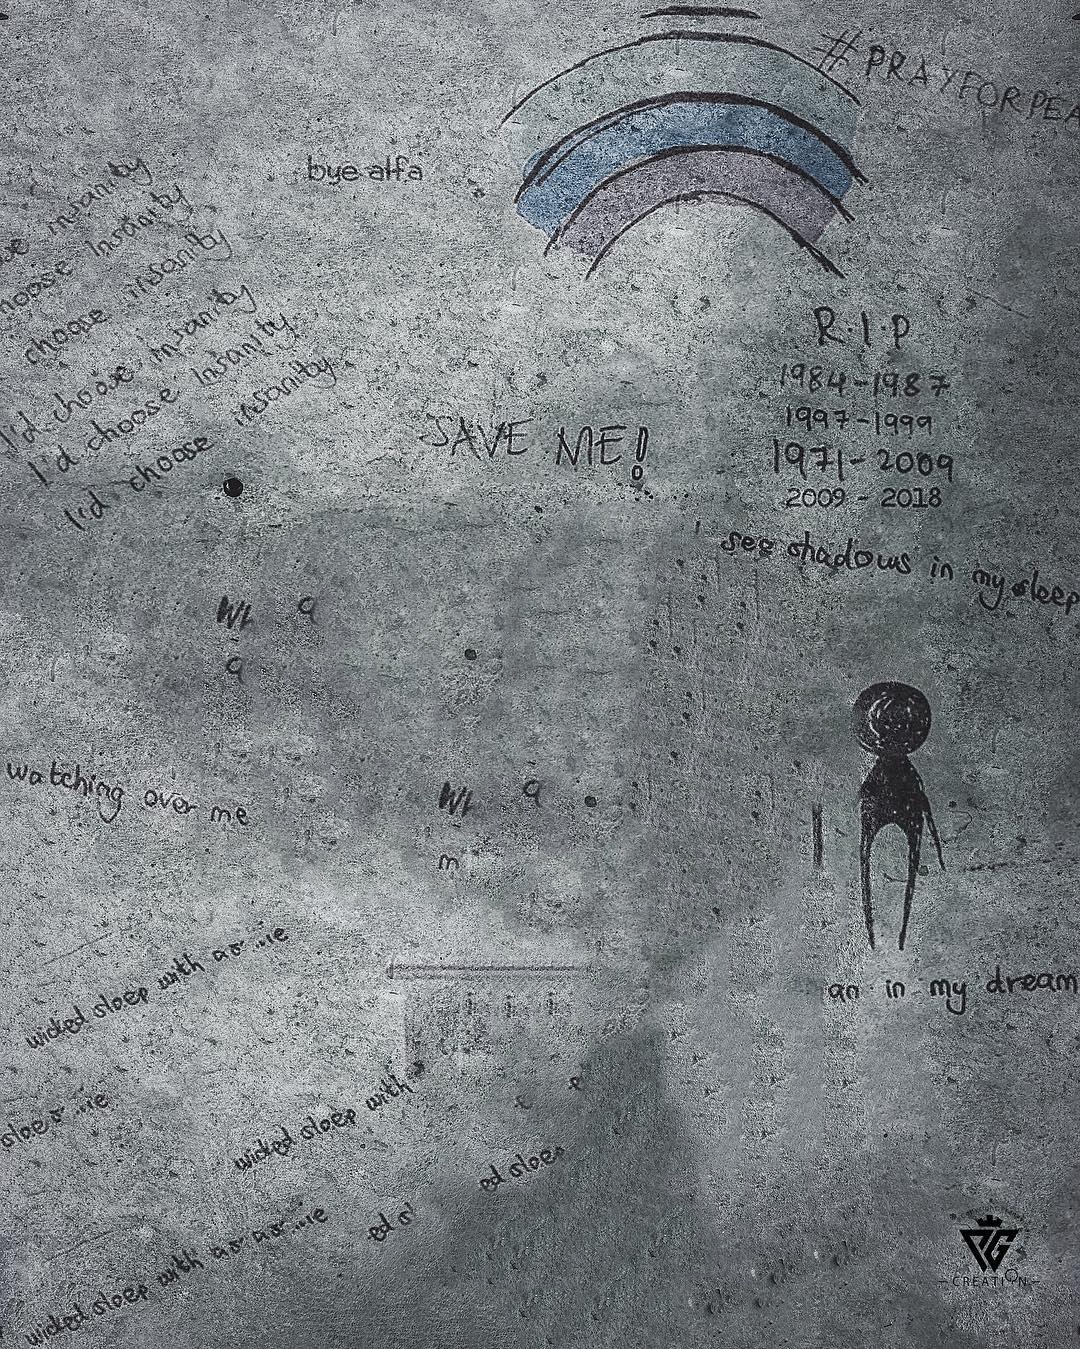 #PRAYFORPEA
bye alfa
insanity
choose insanity
choose insanity
I'd choose insanity
I'd choose insanity
I'd choose insanity
R.I.P
1984-1987
1997-1999
1971-2009
2009-2018
SAVE ME!
I see shadows in my sleep
watching over me
an in my dream
wicked sleep with
wicked sleep with
wicked sleep with
PG
CREATION